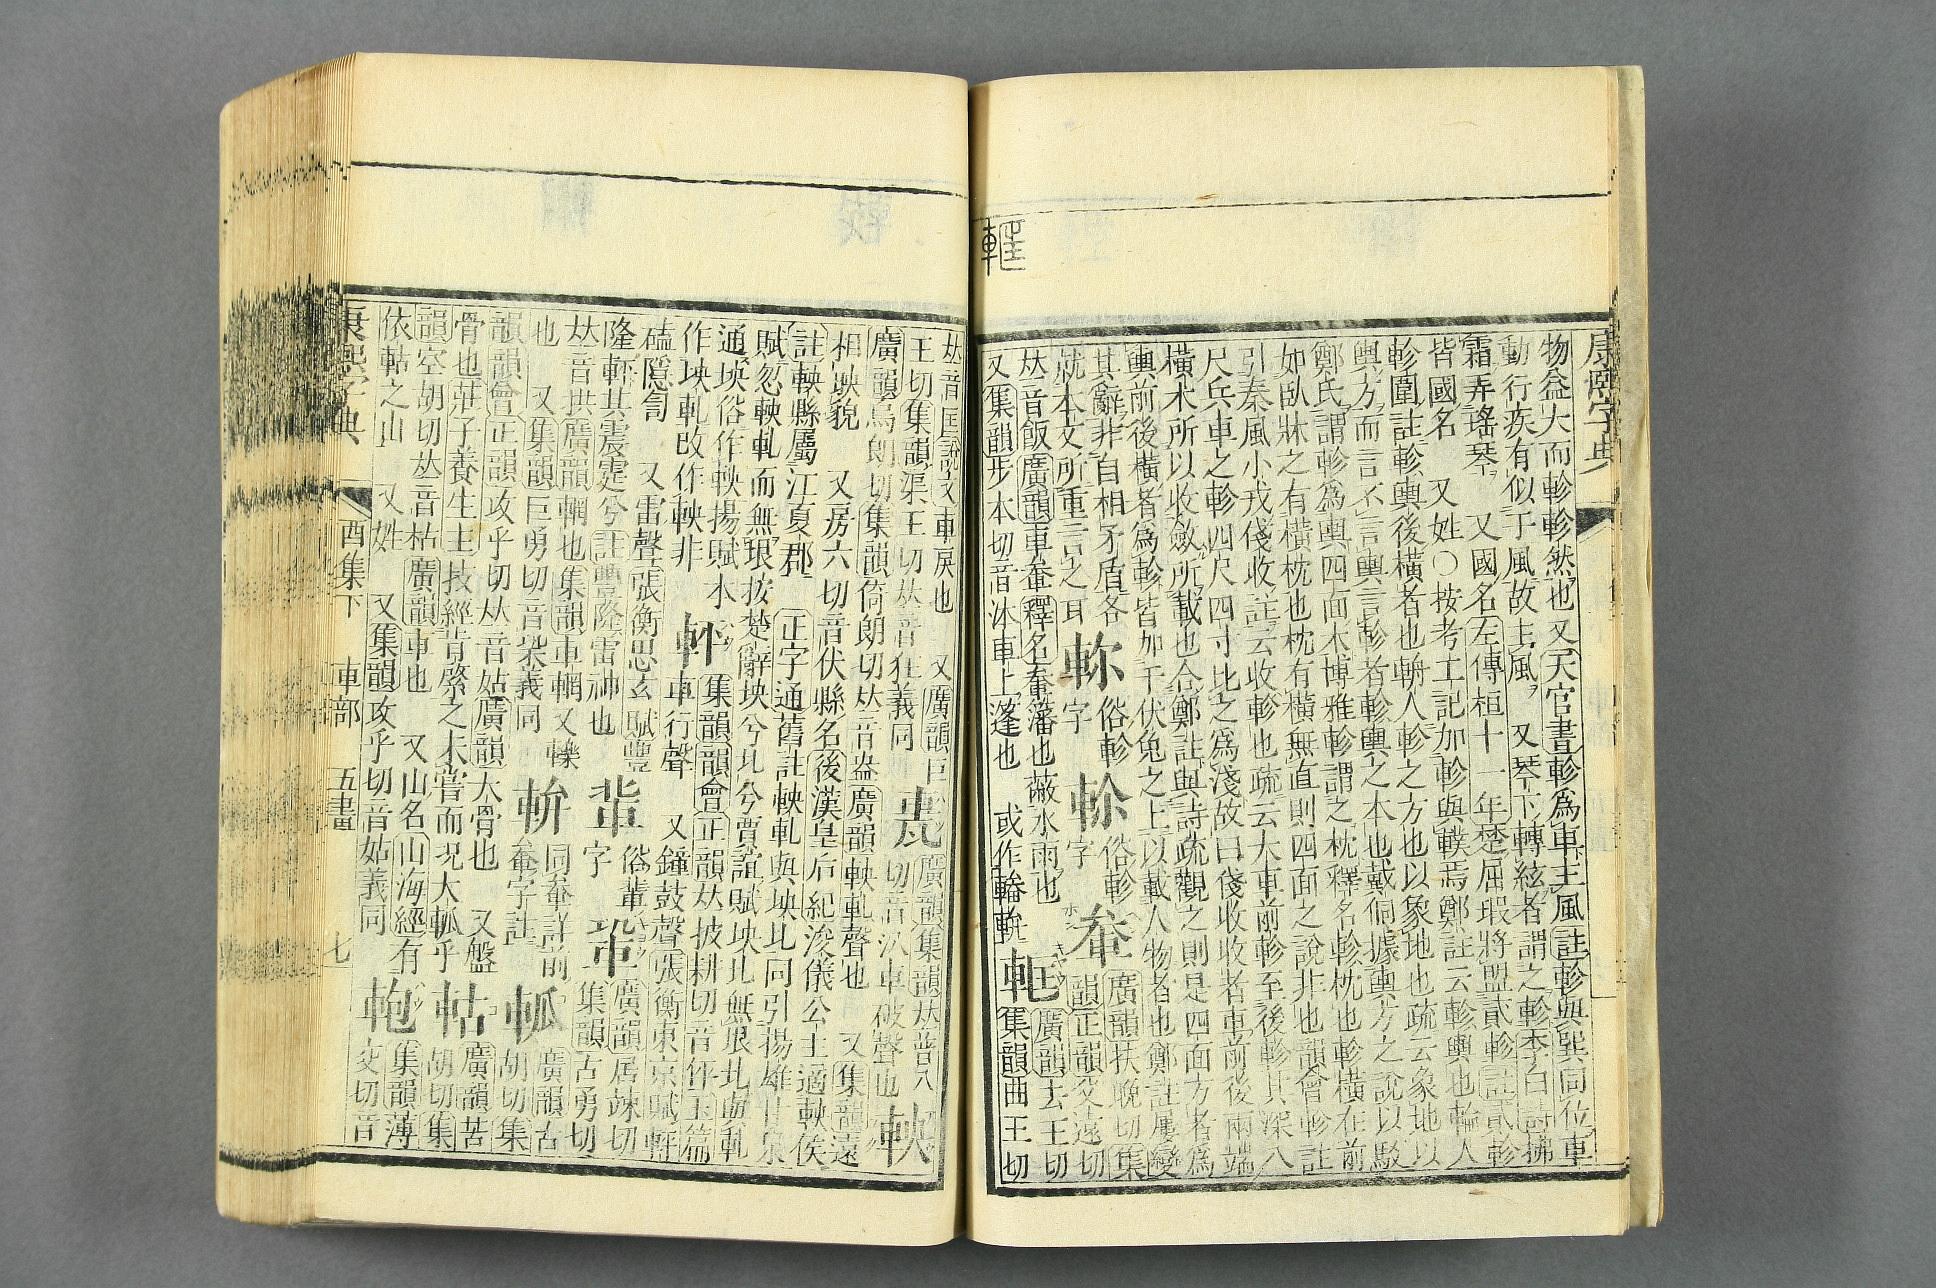 康熙字典
物益大而軫軫然也又天官書軫爲車主風註軫與巽同位車
動行疾有似于風故主風 又琴下轉絃者謂之軫李白詩拂
霜弄瑤琴 又國名左傳桓十一年楚屈瑕將盟貳軫註貳軫
皆國名 又姓○按考工記加軫與轐焉鄭註云軫輿也輪人
軫圍註軫輿後橫者也輈人軫之方也以象地也疏云象地以
輿方而言不言輿言軫者軫輿之本也戴侗據輿方之說以駁
鄭氏謂軫爲輿四面木博雅軫謂之枕釋名軫枕也軫橫在前
如臥牀之有橫枕也枕有橫無直則四面之說非也韻會軫註
引秦風小戎俴收註云收軫也疏云大車前軫至後軫其深八
尺兵車之軫四尺四寸比之爲淺故曰俴收收者車前後兩端
橫木所以收斂所載也合鄭註與詩疏觀之則是四面方者爲
輿前後橫者爲軫皆加于伏兔之上以載人物者也鄭註屢變
其辭非自相矛盾各
就本文所重言之耳
軫 俗軫字
軫 俗軫字
軬 廣韻扶晚切集韻正韻父遠切
𠀤音飯廣韻車軬釋名軬藩也蔽水雨也
又集韻步本切音沐車上篷也 或作轓軿
軭 廣韻去王切集韻曲王切
軭
𠀤音匡說文車戾也 又廣韻巨
王切集韻渠王切𠀤音狂義同
廣韻集韻𠀤普八切音汃車破聲也
軮
廣韻烏朗切集韻倚朗切𠀤音盎廣韻軮軋聲也 又集韻遠
相映貌 又房六切音伏縣名後漢皇后紀浚儀公主適軮侯
註軮縣屬江夏郡 正字通舊註軮軋與坱圠同引揚雄甘泉
賦忽軮軋而無垠按楚辭坱兮圠兮賈誼賦坱圠無垠圠與軋
通坱俗作軮揚賦本
作坱軋改作軮非
軯 集韻韻會正韻𠀤披耕切音伻玉篇
車行聲 又鐘鼓聲張衡東京賦軯
磕隱訇 又雷聲張衡思玄賦豐
隆軯其震霆兮註豐隆雷神也
軰 俗輩字
軵 廣韻居竦切集韻古勇切
𠀤音拱廣韻輞也集韻車輞又轢
也 又集韻巨勇切音蛩義同
軿 同軬註詳前軬字註
軱 廣韻古胡切集
韻韻會正韻攻乎切𠀤音姑廣韻大骨也 又盤
骨也莊子養生主技經肯綮之未嘗而況大軱乎
軲 廣韻苦胡切集
韻空胡切𠀤音枯廣韻車也 又山名山海經有
依軲之山 又姓 又集韻攻乎切音姑義同
軳 集韻薄交切音
康熙字典 酉集下 車部 五畫 七